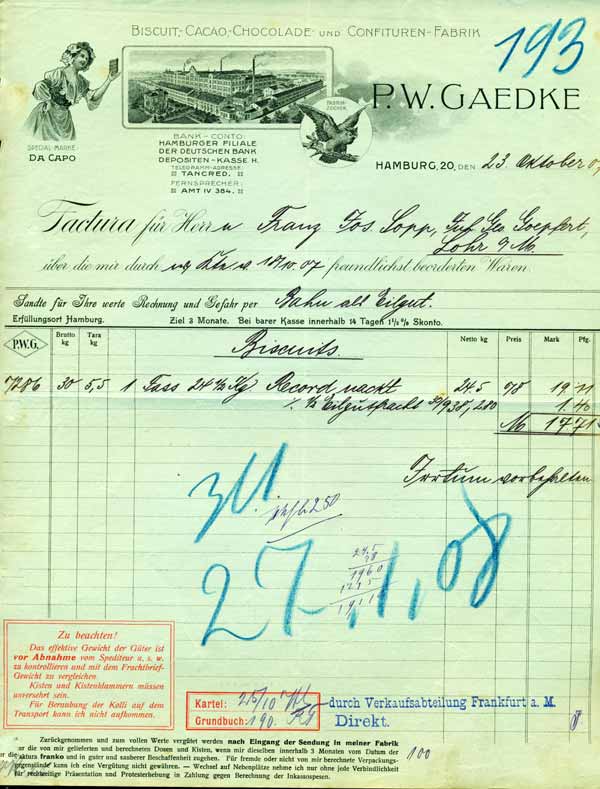 BISCUIT-, CACAO-, CHOCOLADE- UND CONFITUREN-FABRIK
193
P.W. GAEDKE
FABRIK-ZEICHEN
SPECIAL-MARKE:
DA CAPO
BANK-CONTO:
HAMBURGER FILIALE
DER DEUTSCHEN BANK
DEPOSITEN-KASSE H.
TELEGRAMM-ADRESSE:
TANCRED.
FERNSPRECHER:
AMT IV 384.
HAMBURG, 20, DEN 23. Oktober 07
Factura für Herrn Franz Jos. Sopp, Goepfert,
Lohr a/M.
über die mir durch 18/10. 07 freundlichst beorderten Waren.
Sandte für Ihre werte Rechnung und Gefahr per Bahn als Eilgut.
Erfüllungsort Hamburg. Ziel 3 Monate. Bei barer Kasse innerhalb 14 Tagen 1½% Skonto.
P.W.G. Brutto kg Tara kg Netto kg Preis Mark Pfg.
Biscuits.
7286 30 5,5 1 Fass 24½ Kg Record nackt 24.5 78 19 11
½ Eilgutfracht 30/938, 280 1.40
M 17 71
Irrtum vorbehalten
27.1.08
24.5
78
1960
1715
1911
Zu beachten!
Das effektive Gewicht der Güter ist
vor Abnahme vom Spediteur u. s. w.
zu kontrollieren und mit dem Frachtbrief-
Gewicht zu vergleichen.
Kisten und Kistenklammern müssen
unversehrt sein.
Für Beraubung der Kolli auf dem
Transport kann ich nicht aufkommen.
Kartei: 25/10
Grundbuch: 190.
durch Verkaufsabteilung Frankfurt a. M.
Direkt.
Zurückgenommen und zum vollen Werte vergütet werden nach Eingang der Sendung in meiner Fabrik
nur die von mir gelieferten und berechneten Dosen und Kisten, wenn mir dieselben innerhalb 3 Monaten vom Datum der
Faktura franko und in guter und sauberer Beschaffenheit zugehen. Für fremde oder nicht von mir berechnete Verpackungs-
gegenstände kann ich eine Vergütung nicht gewähren. — Wechsel auf Nebenplätze nehme ich nur ohne jede Verbindlichkeit
für rechtzeitige Präsentation und Protesterhebung in Zahlung gegen Berechnung der Inkassospesen.
100